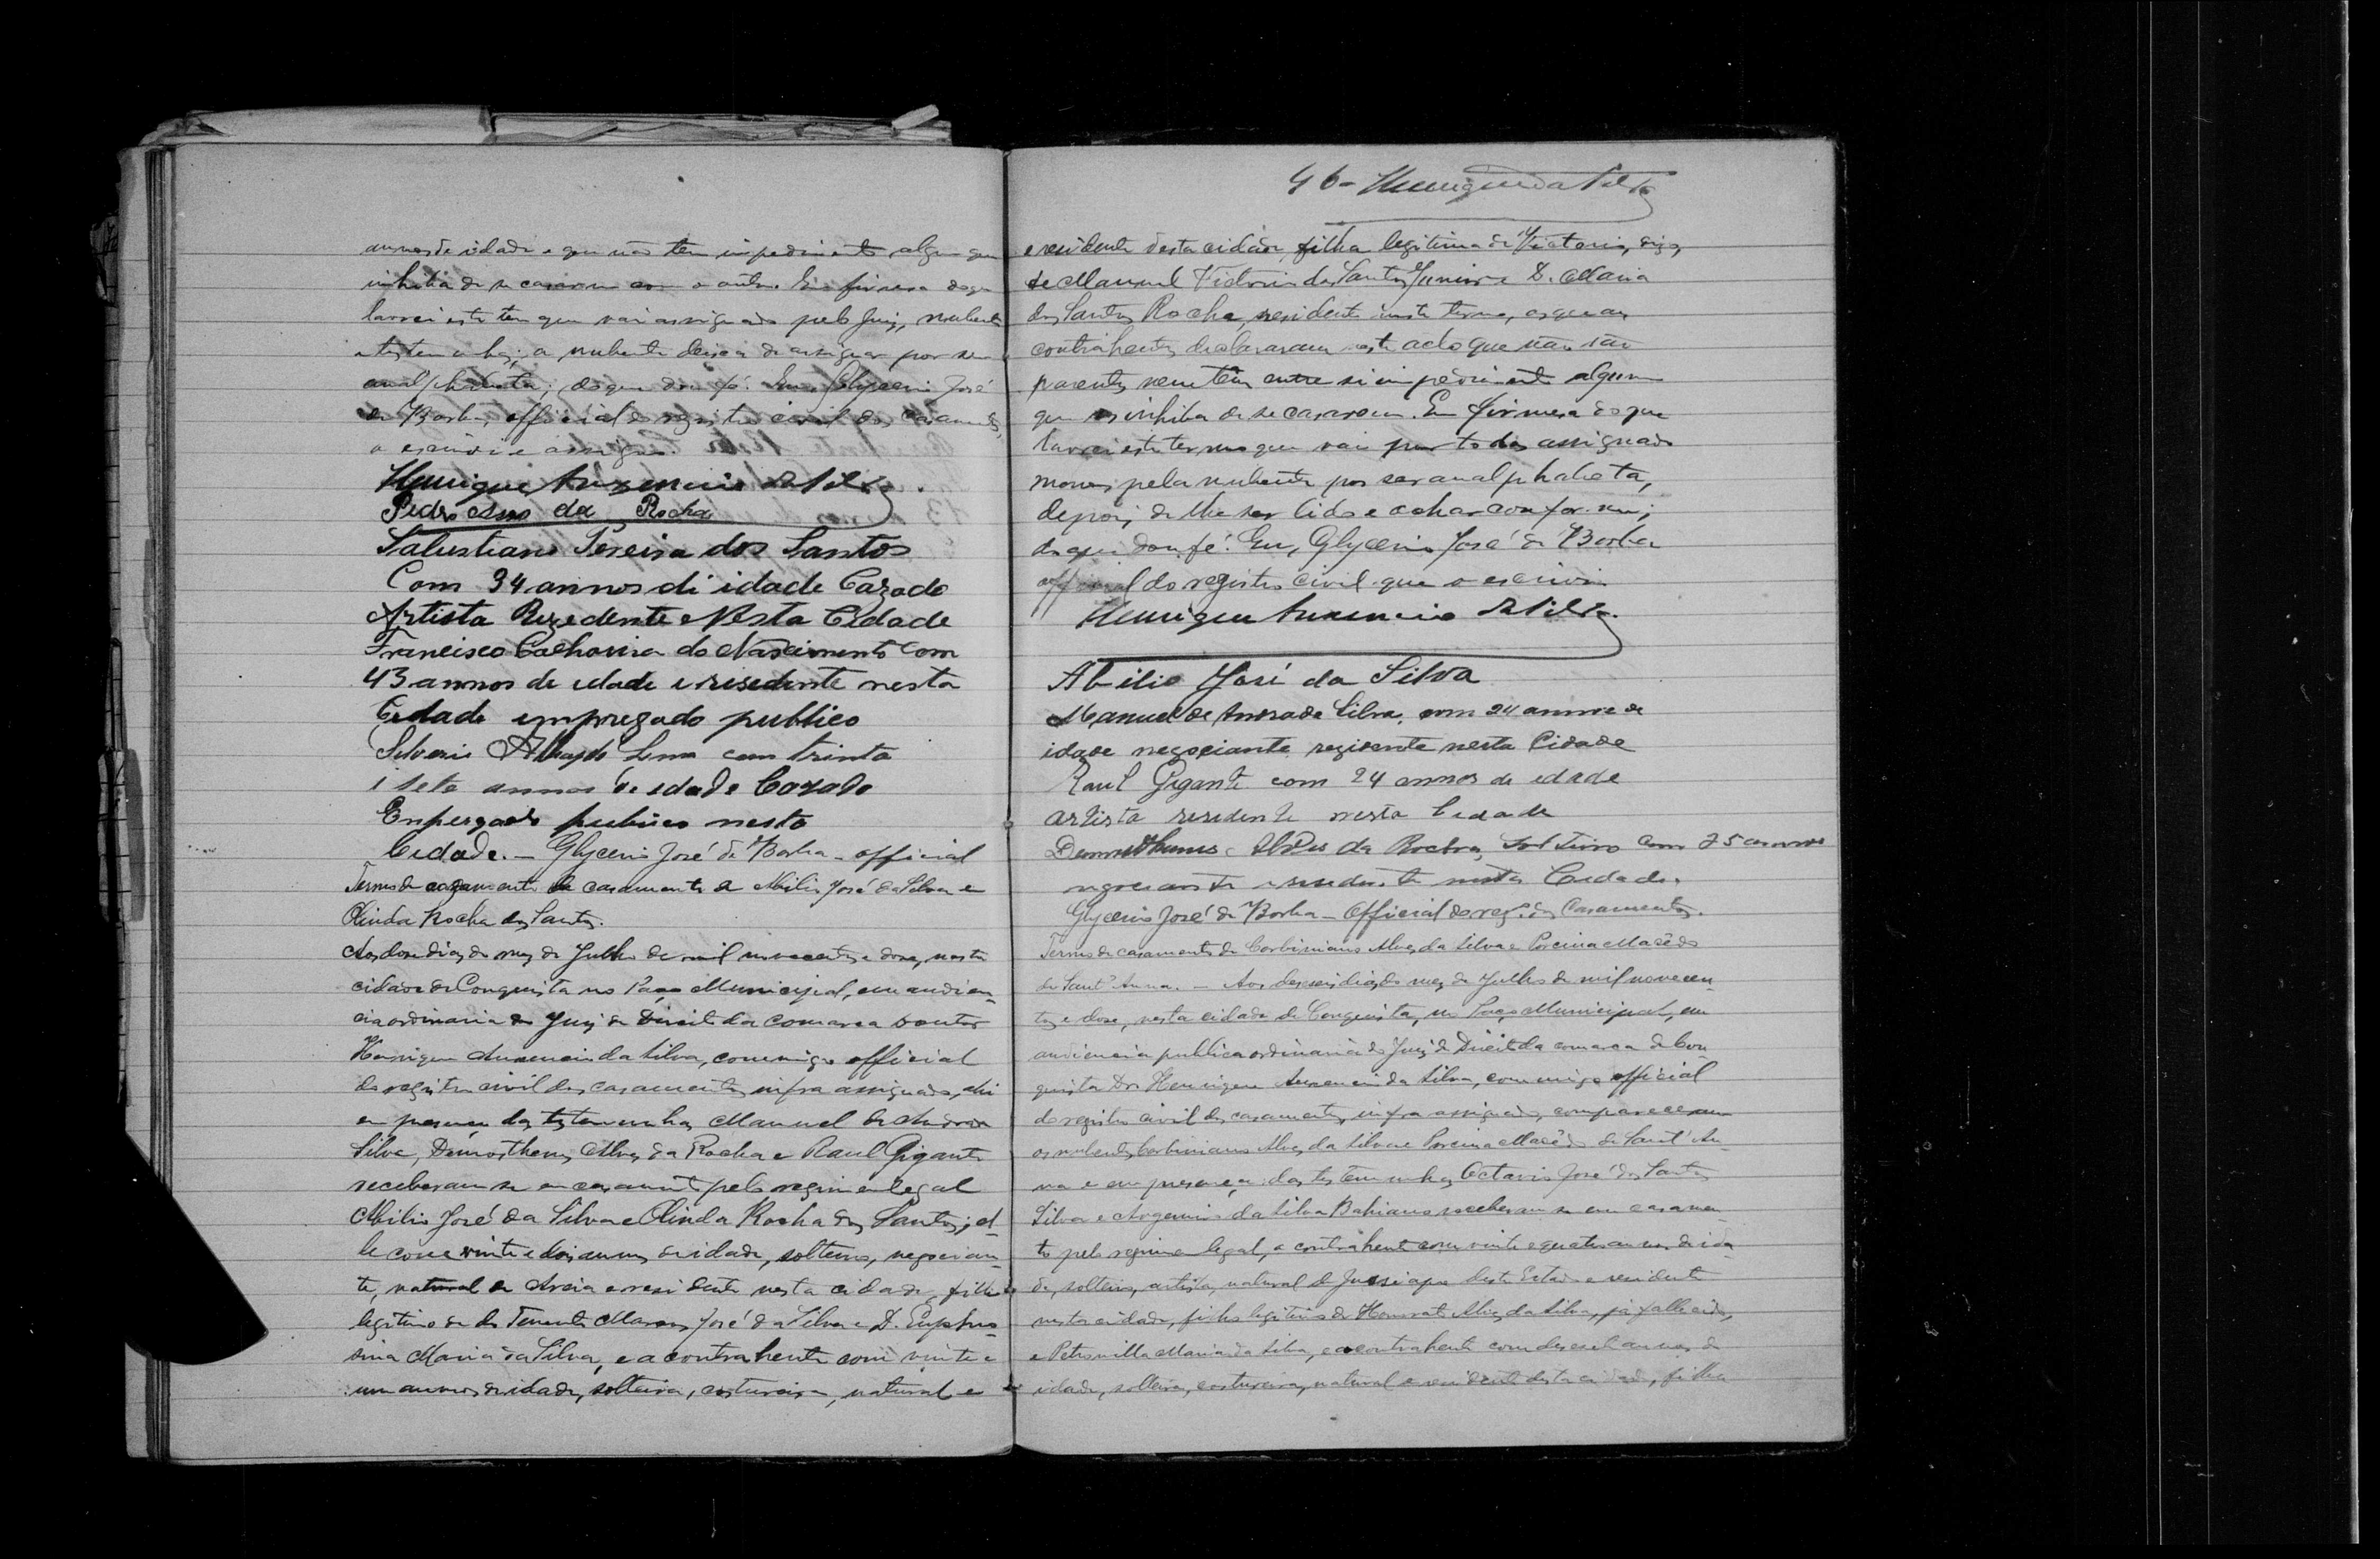 annos de idade e que não tem impedimento algum que
inhiba de se casarem com o outro. Em firmesa do que
lavrei este termo que vai assignado pelo Juiz, nubente
e testemunhas; a nubente deixa de assignar por ser
analphabeta; do que dou fé. Eu, Glycerio José
de Borba, official do registro civil dos casamentos,
o escrevi e assigno.
Henrique Auxencio da Silva.
Pedro Alves da Rocha
Salustiano Pereira dos Santos
Com 34 annos di idade Cazado
Artista Rezedente Nesta Cidade
Francisco do Nascimento Com
43 annos de edade e risedente nesta
Cedade empregado publico
Silverio Lima com trinta
i sete annos de edade Cazado
Enpergado publico nesta
Cedade. — Glycerio José de Borba - official
Termo de cazamento de casamento de Abilio José da Silva e
Olinda Rocha dos Santos.
Aos dose dias do mez de Julho de mil novecentos e dose, nesta
cidade de Conquista no Paço Municipal, em audien-
cia ordinaria do Juiz de Direito da comarca Doutor
Henrique Auxencio da Silva, commigo official
do registro civil dos casamentos infra assignado, ahi
em presença das testemunhas Manuel de Andrade
Silva, Demosthenes Alves da Rocha e Raul Gigante
receberam-se em casamento pelo regimen legal
Abilio José da Silva e Olinda Rocha dos Santos; el-
le com vinte e dois annos de idade, solteiro, negocian-
te, natural de Areia e residente nesta cidade, filho
legitimo de do Tenente José da Silva e D. Euphro-
sina Maria da Silva, e a contrahente com vinte e
um annos de idade, solteira, costureira, natural e
46 - Henrique da Silva
e residente desta cidade, filha legitima de Victorio, digo,
de Manuel Victorio dos Santos Junior e D. Maria
dos Santos Rocha, residente neste termo, os quaes
contrahentes declararam neste acto que não são
parentes nem têm entre si impedimento algum
que os inhiba de se casarem. Em firmesa do que
lavrei este termo que vai por todos assignado
menos pela nubente por ser analphabeta,
depois de lhe ser lido e achar conforme;
do que dou fé. Eu, Glycerio José de Borba
official do registro civil que o escrevi
Henrique Auxencio da Silva.
Abilio José da Silva
Manuel de Andrade Silva, com 24 annos de
idade negociante rezidente nesta Cidade
Raul Gigante com 24 annos de edade
artista residente nesta Cedade
Demosthenes Alves da Rocha, Solteiro com 25 annos
negociante e residente nesta Cedade.
Glycerio José de Borba - Official do reg. dos Casamentos.
Termo de casamento de Corbiniano Alves da Silva e Porcina Macêdo
de Sant'Anna. — Aos deseseis dias do mez de Julho de mil novecen-
tos e dose, nesta cidade de Conquista, no Paço Municipal, em
audiencia publica ordinaria do Juiz de Direito da comarca de Con-
quista Dr. Henrique Auxencio da Silva, commigo official
do registro civil dos casamentos, infra assignado, compareceram
os nubentes Corbiniano Alves da Silva e Porcina Macêdo de Sant'An-
na e em presença das testemunhas Octavio José dos Santos
Silva e da Silva Bahiano receberam-se em casamen-
to pelo regimen legal, o contrahente com vinte e quatro annos de ida-
de, solteiro, artista, natural de Jussiape deste Estado e residente
nesta cidade, filho legitimo de Honorato Alves da Silva, já fallecido,
e Petronilla Maria da Silva, e a contrahente com desesete annos de
idade, solteira, costureira, natural e residente desta cidade, filha